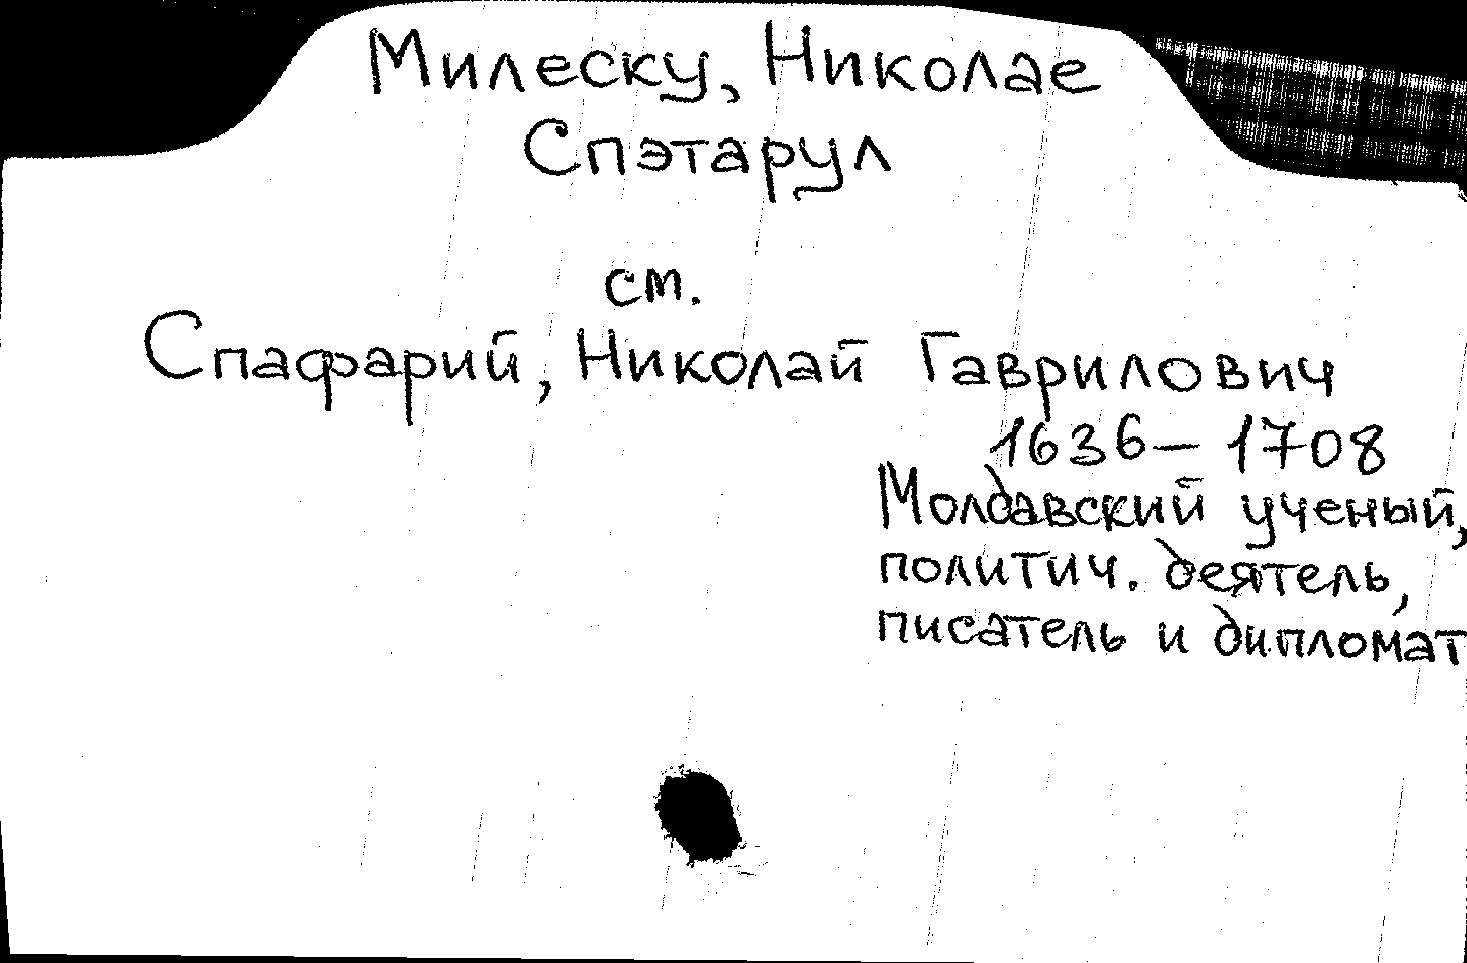 Милеску, Николае
Спэтарул
см.
Спафарий, Николай Гаврилович
1636 – 1708
Молдавский ученый,
политич. деятель,
писатель и дипломат